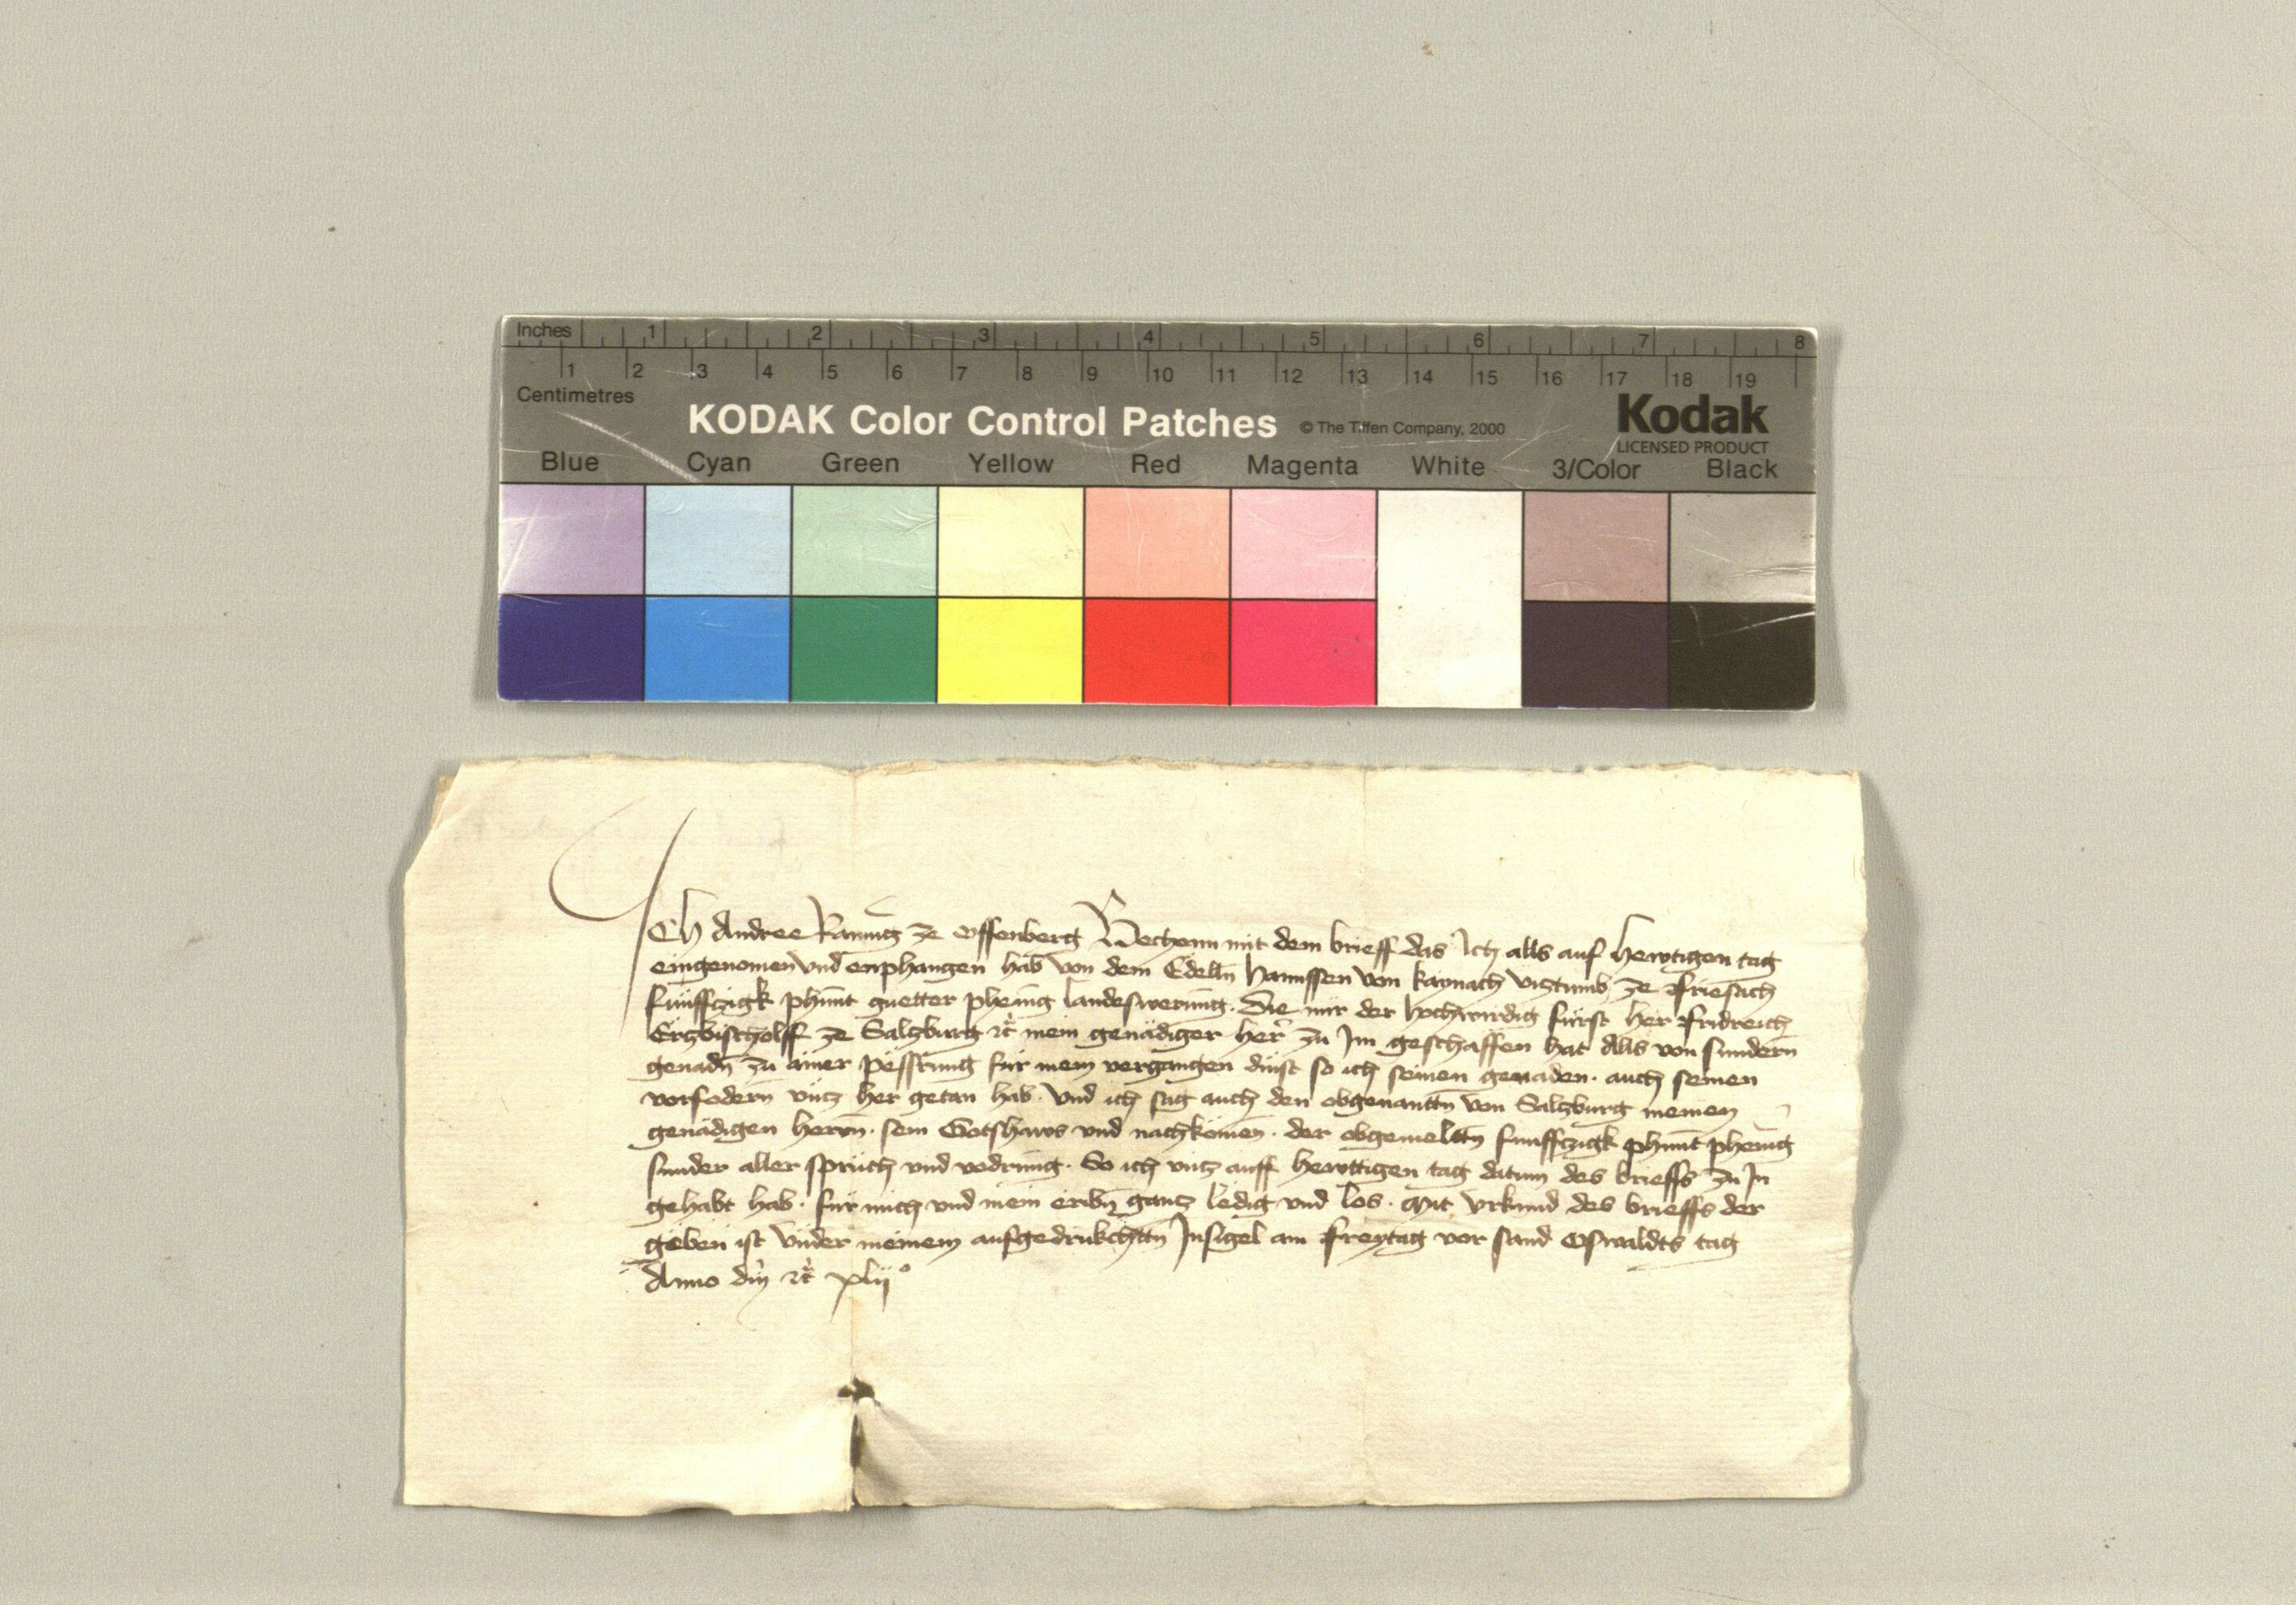 Inches 1 2 3 4 5 6 7 8
1 2 3 4 5 6 7 8 9 10 11 12 13 14 15 16 17 18 19
Centimetres
KODAK Color Control Patches © The Tiffen Company, 2000 Kodak
LICENSED PRODUCT
Blue Cyan Green Yellow Red Magenta White 3/Color Black
Ich Andree ze Offenberg Bechenn mit dem brieff das Ich alls auf hewtigen tag
eingenomen vnd enphangen hab von dem Edelln Hannssen von kaynach viztumb ze Friesach
fünffczigk phunt guetter phenig landeswerung. Die mir der hochwirdig fürst her Fridreich
Erzbischolff ze Salzburg etc mein genädiger her zu Im geschaffen hat Alls von sundern
genadn zu ainer pessrung für mein vergangen dinst so ich seinen genaden. auch seinen
vorfodern vntz her getan hab. Vnd ich sag auch den obgenanttn von Salzburg meinen
genädigen herrn. sein Gotshaws vnd nachkömen. der obgemelttn funffczigk phunt phenig
sunder aller sprüch vnd vodrung. So ich vntz auff hewttigen tag datum des brieffs zu In
gehabt hab. für mich vnd mein eribn gantz ledig vnd los. Mit vrkund des brieffs der
geben ist vnder meinem aufgedrukchttn Insigel am Freytag vor sand Oswaldts tag
Anno dni etc xlii°